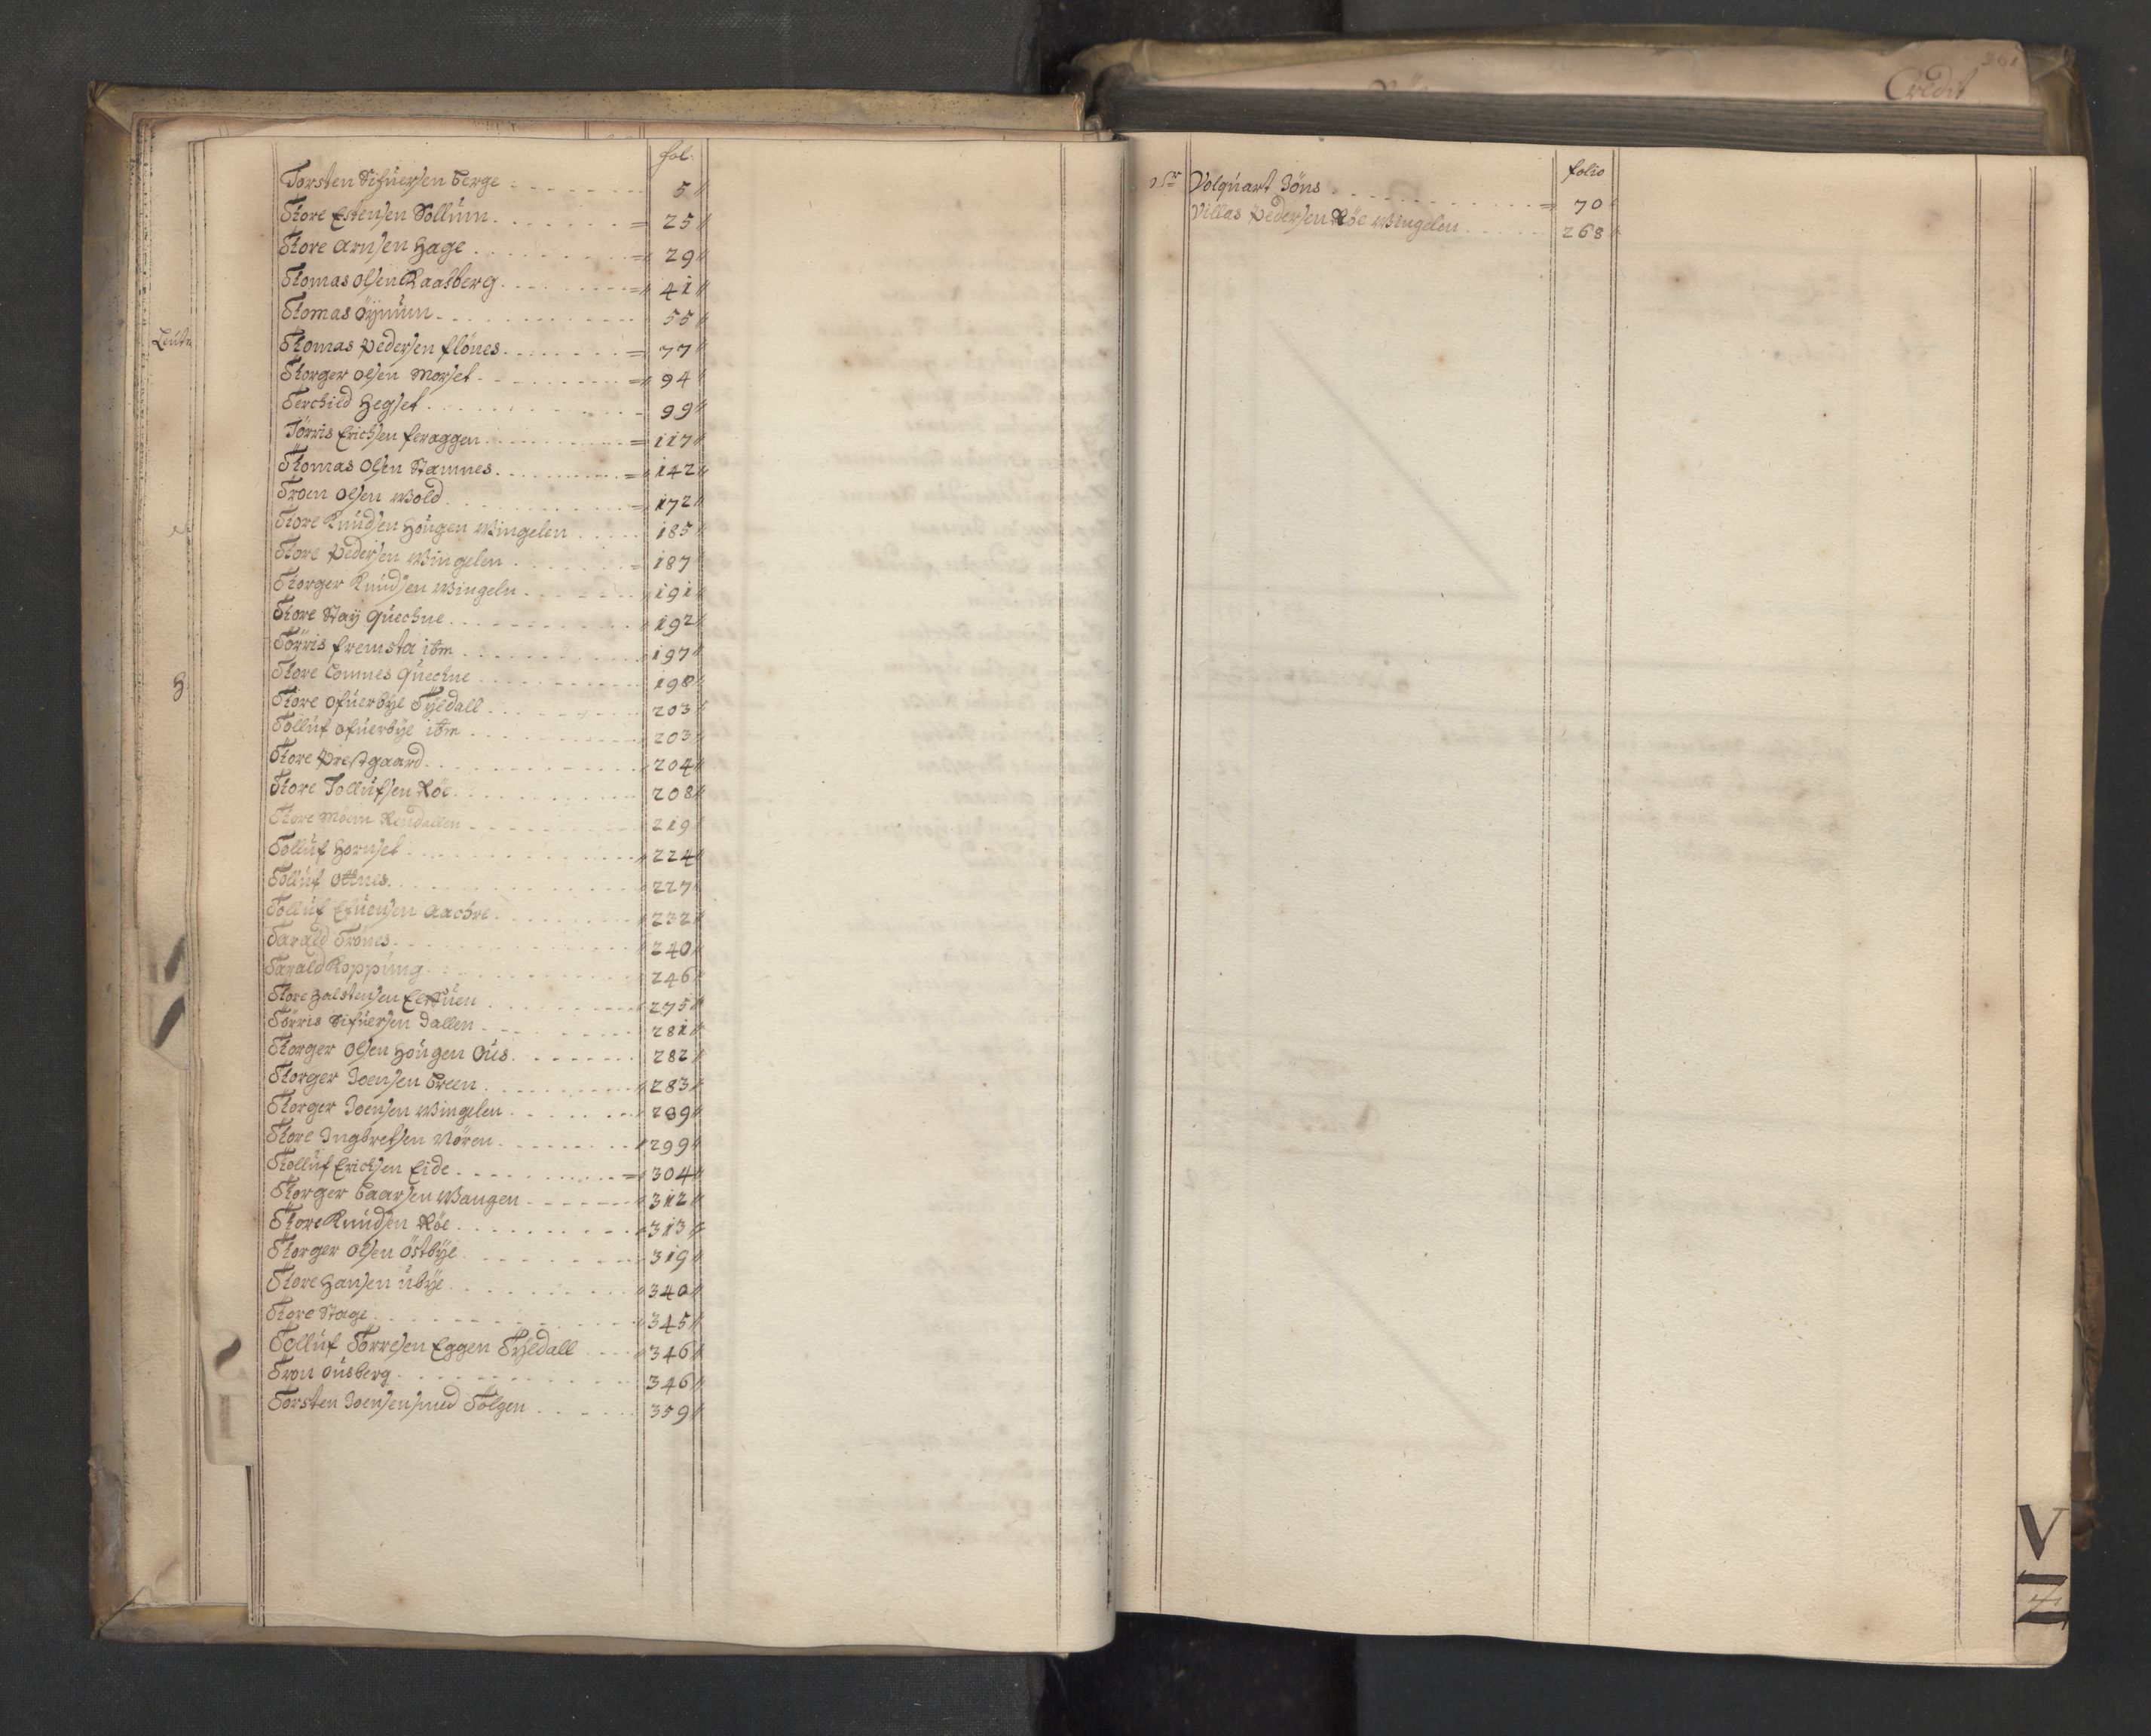 fol.
Torsten Sifuersen berge 5
Tore Estensen Sollum 25
Tore Arnsen Hage 29
Tomas Olsen Kaasberg 41
Tomas Öynum 55
Tomas Pedersen flönes 77
Torger Olsen Morset 94
Terchild Hegset 99
Törris Erichsen feraggen 117
Tomas Olsen Stamnes 142
Troen Olsen Wold 172
Tore Knudsen Hougen Wingelen 185
Tore Pedersen Wingelen 187
Torger Knudsen Wingeln 191
Tore Stay Quechne 192
Törris fremsta itm 197
Tore Comnes Quechne 198
Tore Ofuerbye Tyedall 203
Tolluf Ofuerbye itm 203
Tore Prestgaard 204
Tore Tollufsen Röe 208
Tore Möen Rendallen 219
Tolluf Hornset 224
Tolluf Ottnes 227
Tolluf Efuensen Aachre 232
Tarald Trönes 240
Tarald Koppung 246
Tore Halstensen 275
Törris Sifuersen Dallen 281
Torger Olsen Hougen Ous 282
Torger Joensen Green 283
Torger Joensen Wingelen 289
Tore Ingbretsen Nören 299
Tolluf Erichsen Eide 304
Torger Baarsen Wangen 312
Tore Knudsen Röe 313
Torger Olsen Östbye 319
Tore Hansen Ubye 340
Tore Stage 345
Tolluf Torresen Eggen Tyedall 346
Tron Ousberg 346
Torsten Joensen smed Tolgen 359
Leutn
H
Credit
301
folio
Volquart Jöns 70
Villas Pedersen Röe Wingelen 268
V